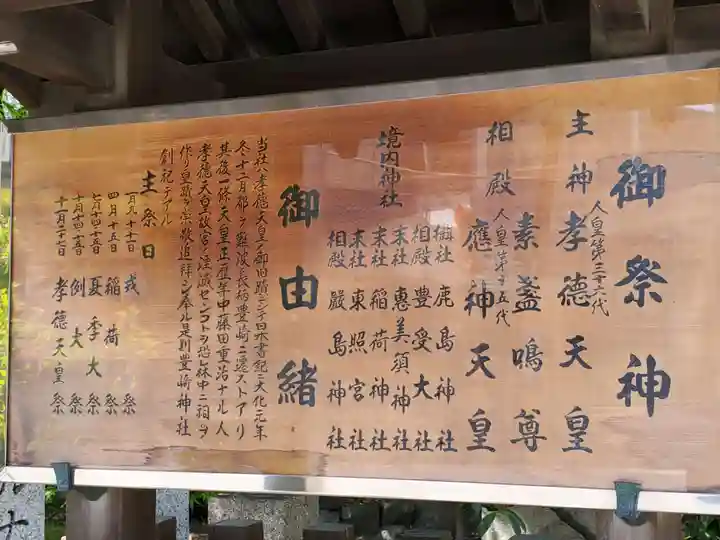 御祭神
主神 孝德天皇
人皇第三十六代
素盞鳴尊
相殿 應神天皇
人皇第十五代
境内神社
摂社 鹿島神社
相殿 豊受大社
末社 惠美須神社
末社 稲荷神社
末社 東照宮社
相殿 嚴島神社
御由緒
当社ハ孝德天皇ノ御旧跡ニシテ日本書紀ニ大化元年
冬十二月都ヲ難波長柄豊崎ニ遷ストアリ
其後一條天皇正暦年中藤田重治ナル人
孝德天皇故宮ノ湮滅センコトヲ恐レ林中ニ祠ヲ
作リ皇跡ヲ崇敬追拜シ奉ル是則豊崎神社
創祀デアル
主祭日
一月九十十一日 戎祭
四月十五日 稲荷祭
七月十四十五日 夏季大祭
十月十四十五日 例大祭
十一月二十七日 孝德天皇祭